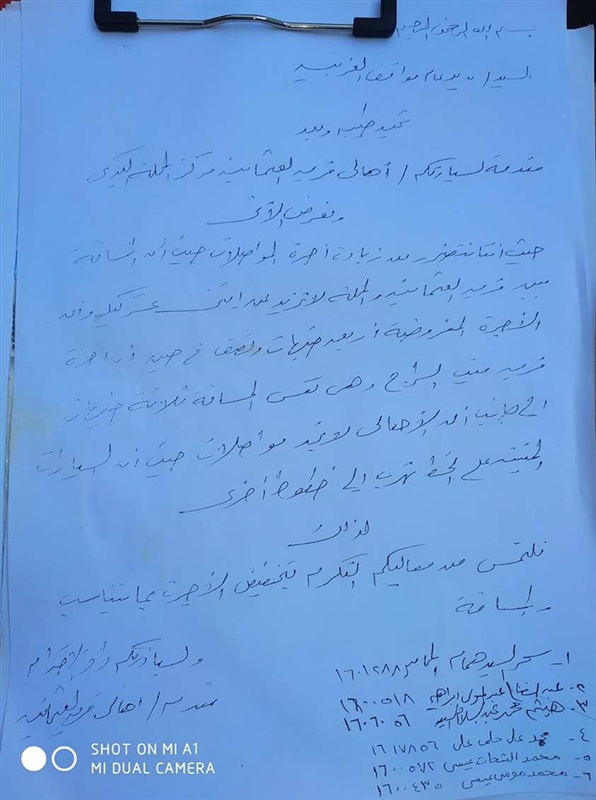 بسم الله الرحمن الرحيم
السيد / مدير عام مواقف الغربية
تحية طيبة وبعد
مقدمة لسيادتكم / أهالى قرية العثمانية مركز المحلة الكبرى
ونعرض الآتى
حيث أننا نتضرر من زيادة أجرة المواصلات حيث أن المسافة
بين قرية العثمانية والمحلة لا تزيد عن اثنى عشر كيلو وأن
الأجرة المفروضة أربعة جنيهات ونصف في حين أن أجرة
قرية ميت السراج وهى نفس المسافة ثلاثة جنيهات
الى جانب أن الأهالى لا تجد مواصلات حيث أن السيارات
المثبتة على الخط تهرب إلى خطوط أخرى
لذلك
فنلتمس من معاليكم التكرم بتخفيض الأجرة بما يتناسب
والمسافة
ولسيادتكم وافر الاحترام
مقدمه / أهالى قرية العثمانية
١- سحر السيد همام ١٦٠١٢٨٨
٢- عبد ابراهيم ١٦٠٠٥١٨
٣- هيثم محمد عبد ١٦٠٦٠٥٦
٤- محمد على حلمى على ١٦١٧٨٥٦
٥- محمد الشحات عيسى ١٦٠٠٥٧٢
٦- محمد موسى عيسى ١٦٠٠٤٣٥
SHOT ON MI A1
MI DUAL CAMERA